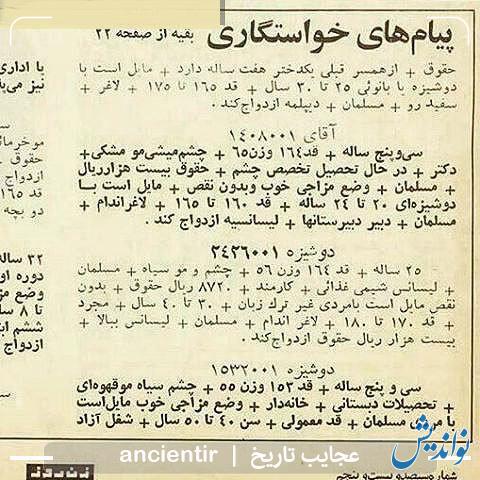 پیام‌های خواستگاری بقیه از صفحه ۲۲
حقوق + ازهمسر قبلی یکدختر هفت ساله دارد + مایل است با
دوشیزه یا بانوئی ۲۵ تا ۳۰ سال + قد ۱۶۵ تا ۱۷۵ + لاغر +
سفید رو + مسلمان + دیپلمه ازدواج‌کند.
آقای ۱۴۰۸۰۰۱
سی‌و‌پنج ساله + قد۱۶۴ وزن۶۵ + چشم‌میشی‌مو مشکی+
دکتر + در حال تحصیل تخصص چشم + حقوق بیست هزارریال
+ مسلمان + وضع مزاجی خوب وبدون نقص + مایل است بـا
دوشیزه‌ای ۲۰ تا ۲۴ ساله + قد ۱۶۰ تا ۱۶۵ + لاغراندام +
مسلمان + دبیر دبیرستانها + لیسانسیه ازدواج کند.
دوشیزه ۲۴۲۶۰۰۱
۲۵ ساله + قد ۱۶۴ وزن ۵۶ + چشم و مو سیاه + مسلمان
+ لیسانس شیمی غذائی + کارمند + ۸۷۲۰ ریال حقوق + بدون
نقص مایل است بامردی غیر ترك زبان + ۳۰ تا ۴۰ سال + مجرد
+ قد ۱۷۰ تا ۱۸۰ + لاغر اندام + مسلمان + لیسانس ببالا +
بیست هزار ریال حقوق ازدواج‌کند.
دوشیزه ۱۵۳۲۰۰۱
سی و پنج ساله + قد ۱۵۳ وزن ۵۵ + چشم سیاه موقهوه‌ای
+ تحصیلات دبستانی + خانه‌دار + وضع مزاجی خوب مایل‌است
با مردی مسلمان + قد معمولی + سن ۴۰ تا ۵۰ سال + شغل آزاد
یا اداری
نیز می‌
موخرما
حقوق
ازدواج
قد ۱۶۵
دو بچه
۳۲ ساله
دوره او
وضع مز
تا ۸ سا
ششم ابت
ازدواج
عجایب تاریخ | ancientir
نواندیش
شماره سیصدو بیست‌و پنجم
زن‌روز